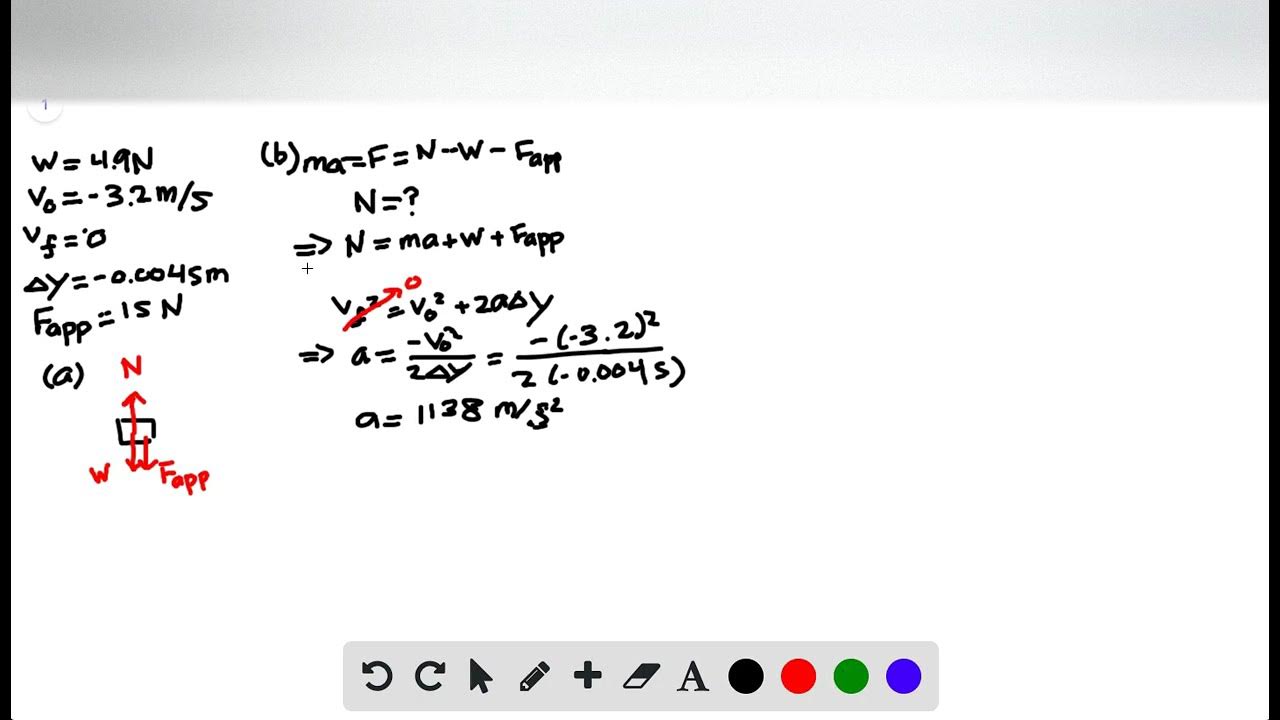 1
W = 4.9N
V₀ = -3.2 m/s
V_f = 0
ΔY = -0.0045m
F_app = 15 N
(a)
N
W F_app
(b) ma = F = N - W - F_app
N = ?
=> N = ma + W + F_app
V_f² = V₀² + 2aΔY
0
=> a = -V₀² / 2ΔY = -(-3.2)² / 2(-0.0045)
a = 1138 m/s²
A